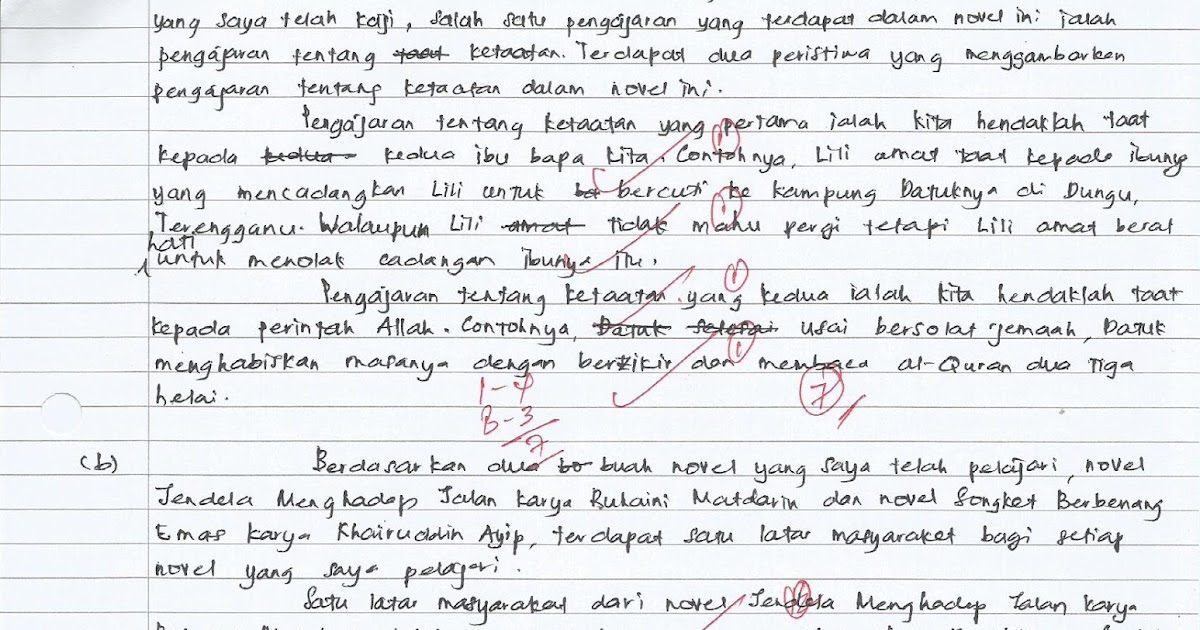 yang saya telah kaji, salah satu pengajaran yang terdapat dalam novel ini ialah
pengajaran tentang taat ketaatan. Terdapat dua peristiwa yang menggambarkan
pengajaran tentang ketaatan dalam novel ini.
Pengajaran tentang ketaatan yang pertama ialah kita hendaklah taat
kepada kedua kedua ibu bapa kita. Contohnya, Lili amat taat kepada ibunya
yang mencadangkan Lili untuk bercuti ke kampung Datuknya di Dungu,
Terengganu. Walaupun Lili amat tidak mahu pergi tetapi Lili amat berat
hati
untuk menolak cadangan ibunya itu.
Pengajaran tentang ketaatan yang kedua ialah kita hendaklah taat
kepada perintah Allah. Contohnya, Datuk usai bersolat jemaah, Datuk
menghabiskan masanya dengan berzikir dan membaca al-Quran dua tiga
helai.
7
B-3
7
(b) Berdasarkan dua buah novel yang saya telah pelajari, novel
Jendela Menghadap Jalan karya Ruhaini Matdarin dan novel Songket Berbenang
Emas karya Khairuddin Ayip, terdapat satu latar masyarakat bagi setiap
novel yang saya pelajari.
Satu latar masyarakat dari novel Jendela Menghadap Jalan karya